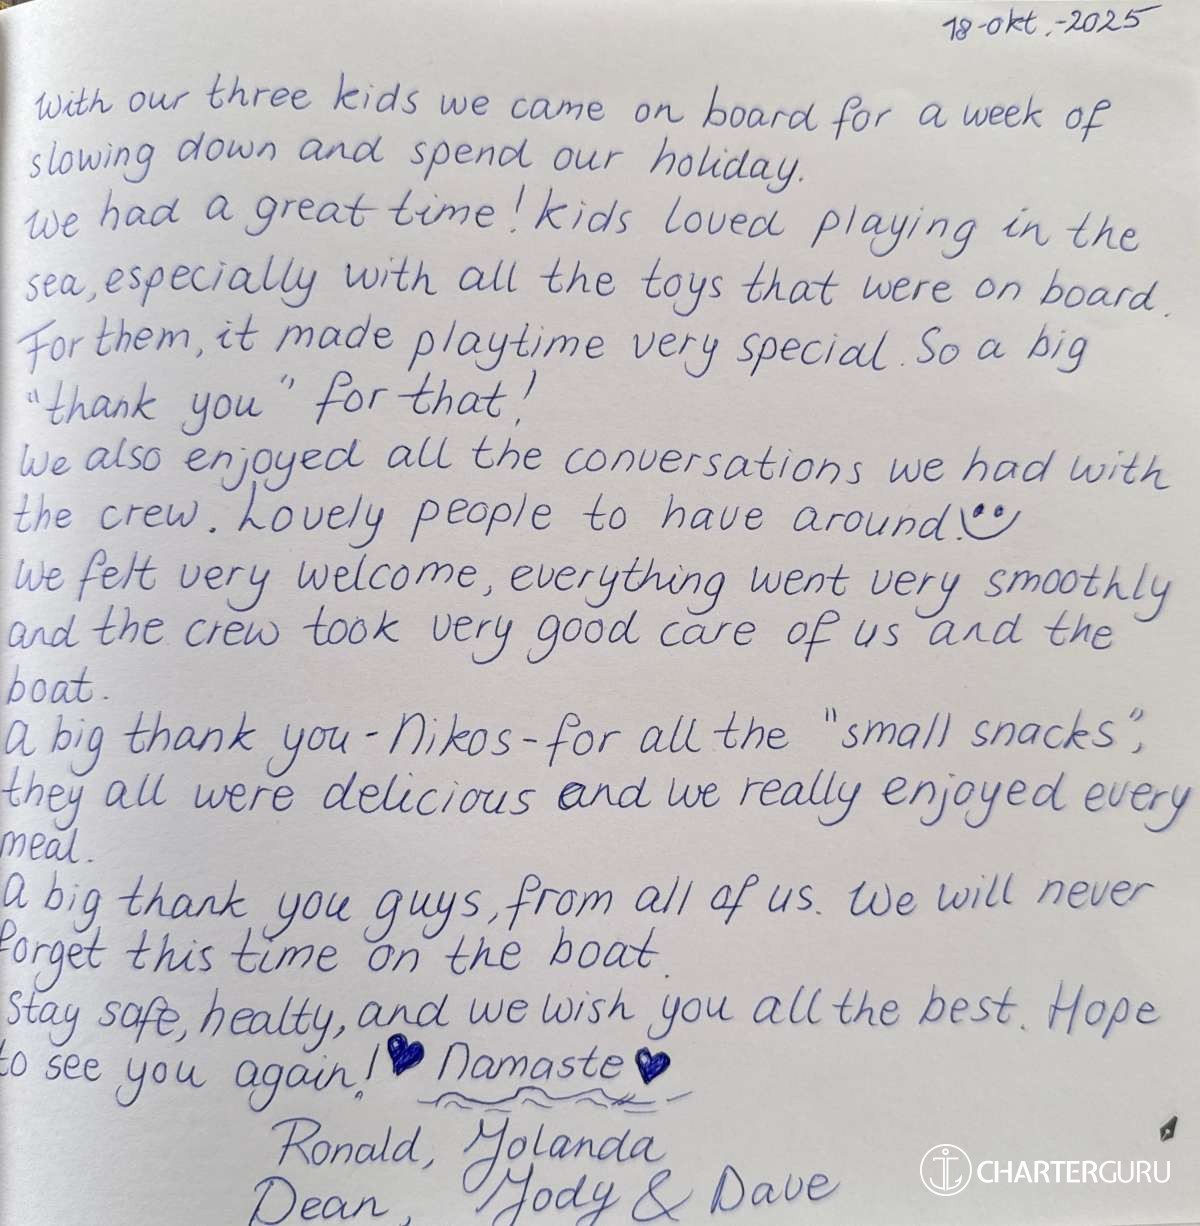 18-okt.-2025
With our three kids we came on board for a week of
slowing down and spend our holiday.
We had a great time! Kids loved playing in the
sea, especially with all the toys that were on board.
For them, it made playtime very special. So a big
"thank you" for that!
We also enjoyed all the conversations we had with
the crew. Lovely people to have around!
We felt very welcome, everything went very smoothly
and the crew took very good care of us and the
boat.
A big thank you - Nikos - for all the "small snacks",
they all were delicious and we really enjoyed every
meal.
A big thank you guys, from all of us. We will never
forget this time on the boat.
Stay safe, healty, and we wish you all the best. Hope
to see you again! Namaste
Ronald, Yolanda
Dean, Jody & Dave
CHARTERGURU